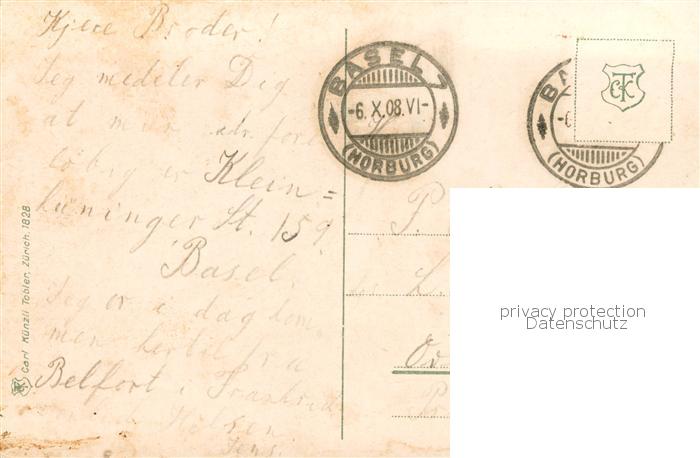 Kjere Broder!
Jeg medeler Dig
at min adr. for
er Klein=
huninger St. 159
Basel.
Jeg er i dag kom
men hertil fra
Belfort i Frankrig
Hilsen
Jens.
Carl Künzli Tobler, Zürich. 1828
BASEL 7
-6.X.08.VI-
(HORBURG)
BA
(HORBURG)
CKT
P.
L.
Od
privacy protection
Datenschutz